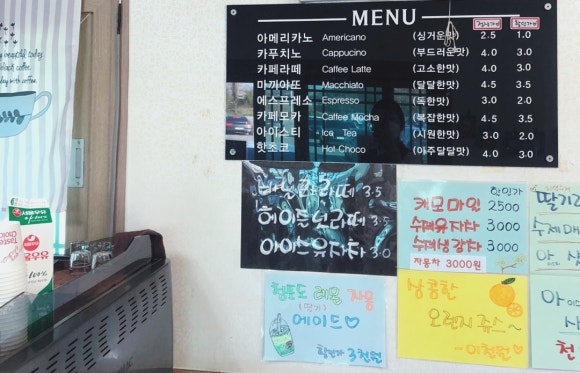 MENU
정상가 할인가
아메리카노 Americano (싱거운맛) 2.5 1.0
카푸치노 Cappucino (부드러운맛) 4.0 3.0
카페라떼 Caffee Latte (고소한맛) 4.0 3.0
마끼아또 Macchiato (달달한맛) 4.5 3.5
에스프레소 Espresso (독한맛) 3.0 2.0
카페모카 Caffee Mocha (복잡한맛) 4.5 3.5
아이스티 Ice Tea (시원한맛) 3.0 2.0
핫쵸코 Hot Choco (아주달달맛) 4.0 3.0
바닐라라떼 3.5
헤이즐넛라떼 3.5
아이스유자차 3.0
할인가
캐모마일 2500
수제유자차 3000
수제생강차 3000
자몽차 3000원
딸기라
수제매
아이스
청포도 레몬 자몽
(딸기)
에이드
할인가 3천원
상콤한
오렌지 쥬스~
-이천원
서울우유
100%